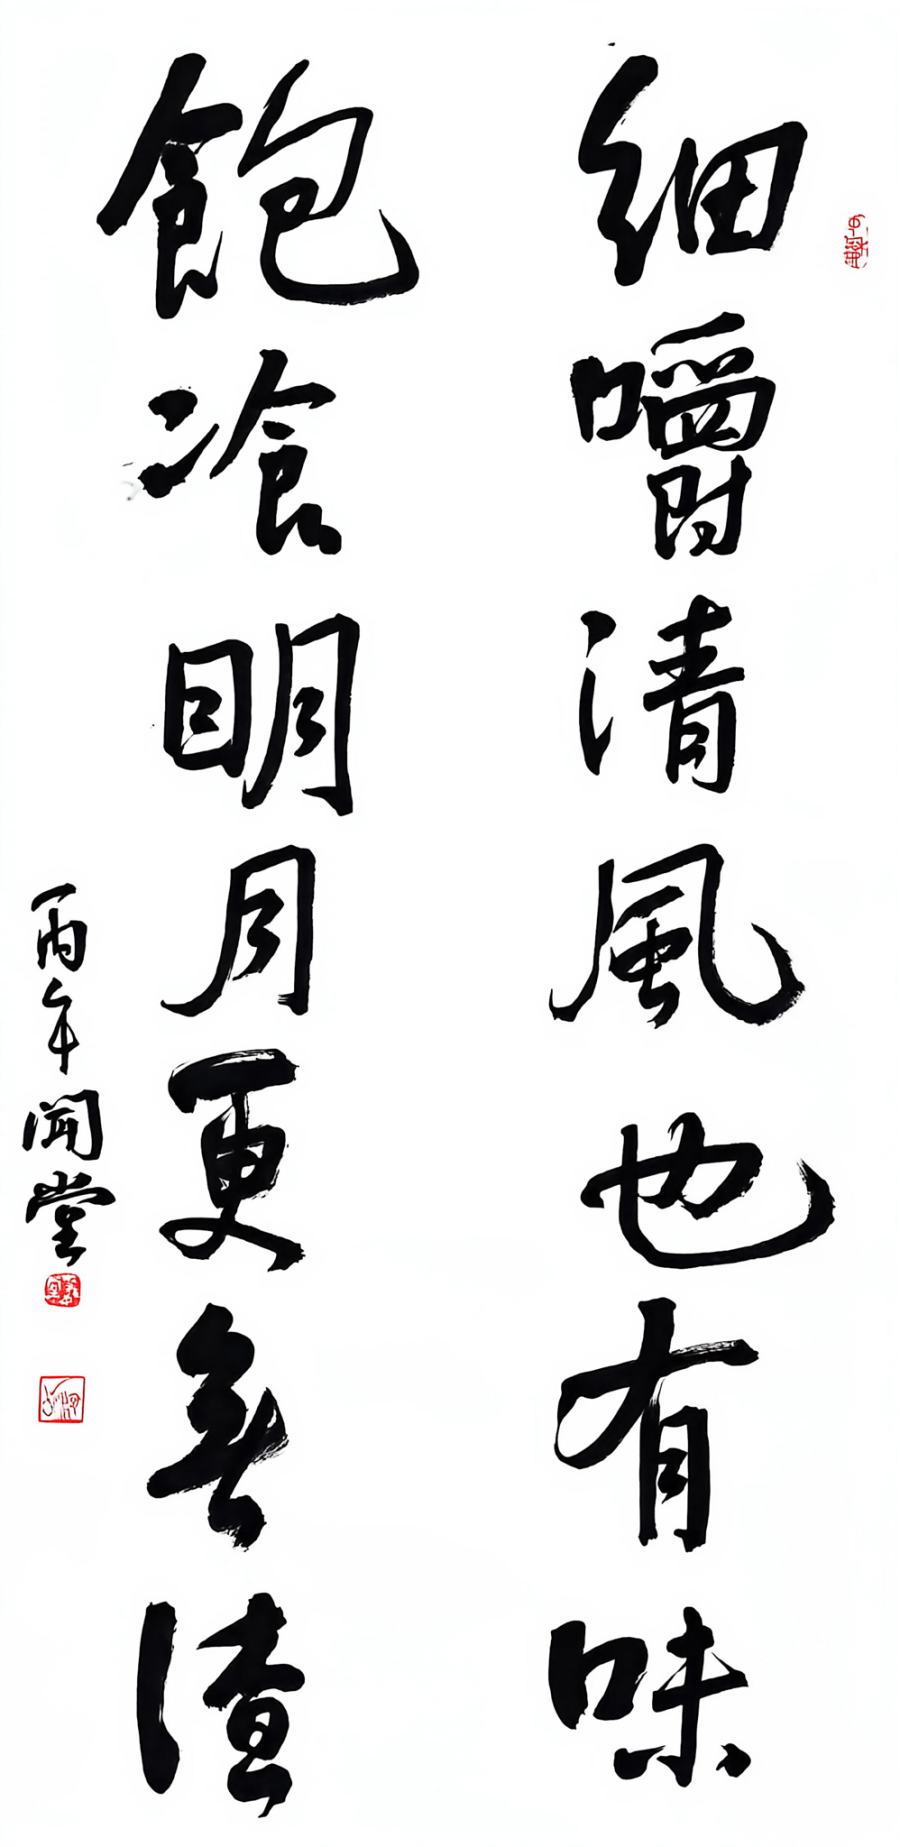 細嚼清風也有味
飽飡明月更無渣
丙午聞堂